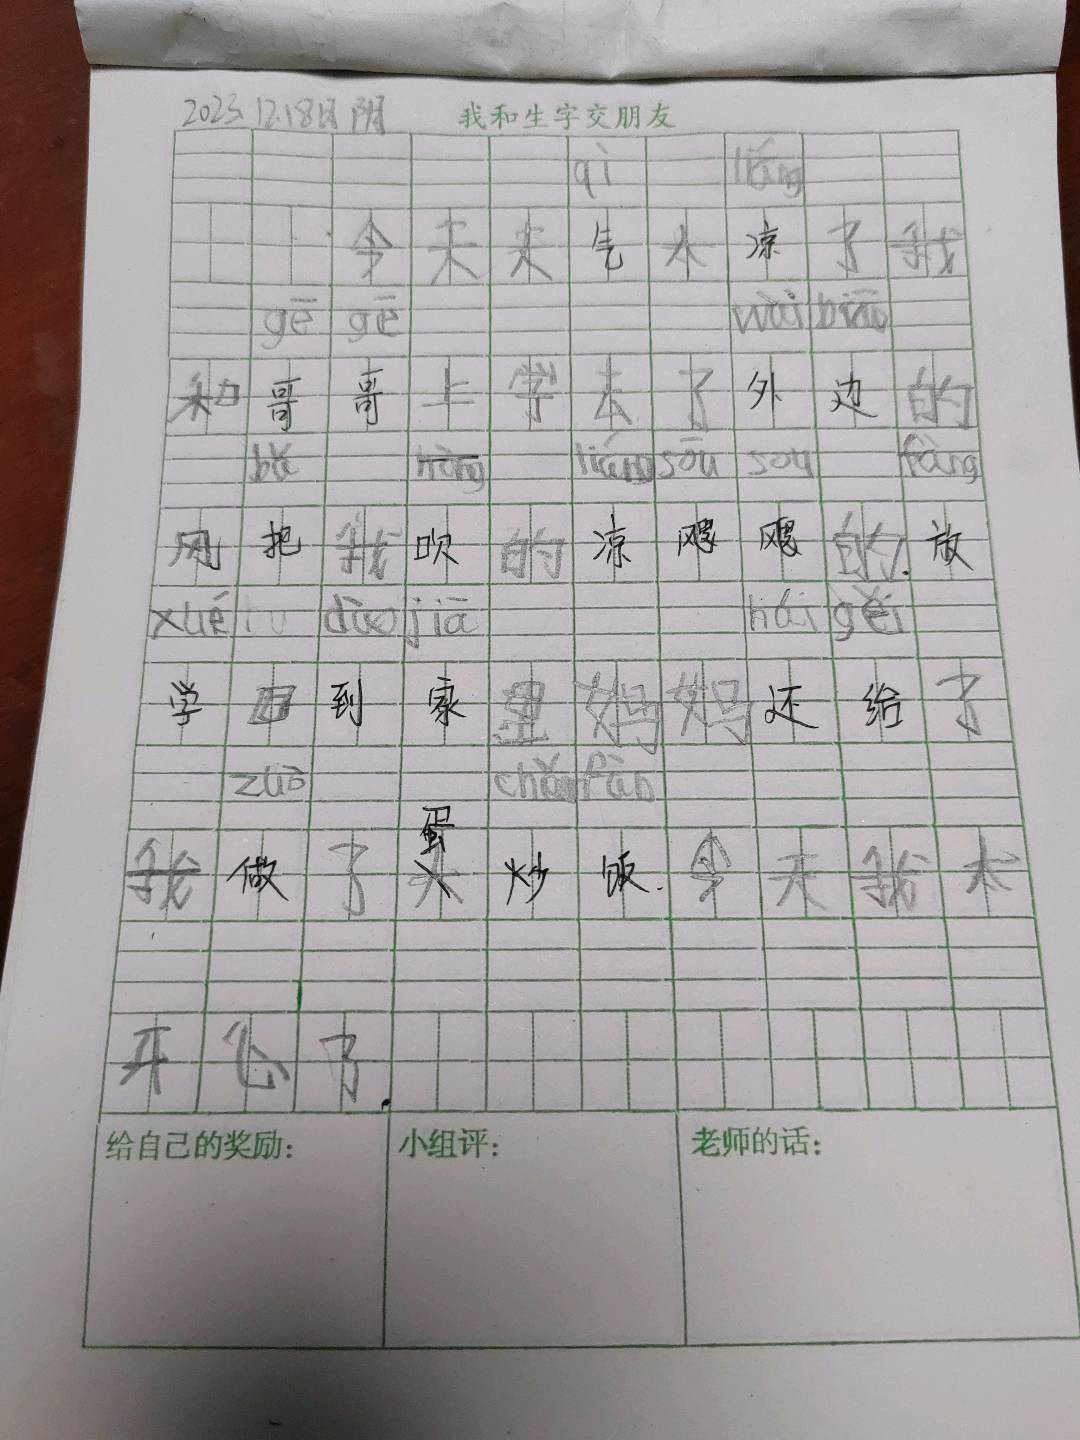 2023.12.18日 阴 我和生字交朋友
qì liáng
今天天气木凉了我
gē gē wài biān
和哥哥上学去了外边的
bǎ liáng sōu sou fàng
风把我吹的凉飕飕的.放
xué dào jiā hái gěi
学回到家里妈妈还给了
zuò chǎo fàn
蛋
我做了炒饭.今天我太
开心了.
给自己的奖励: 小组评: 老师的话: